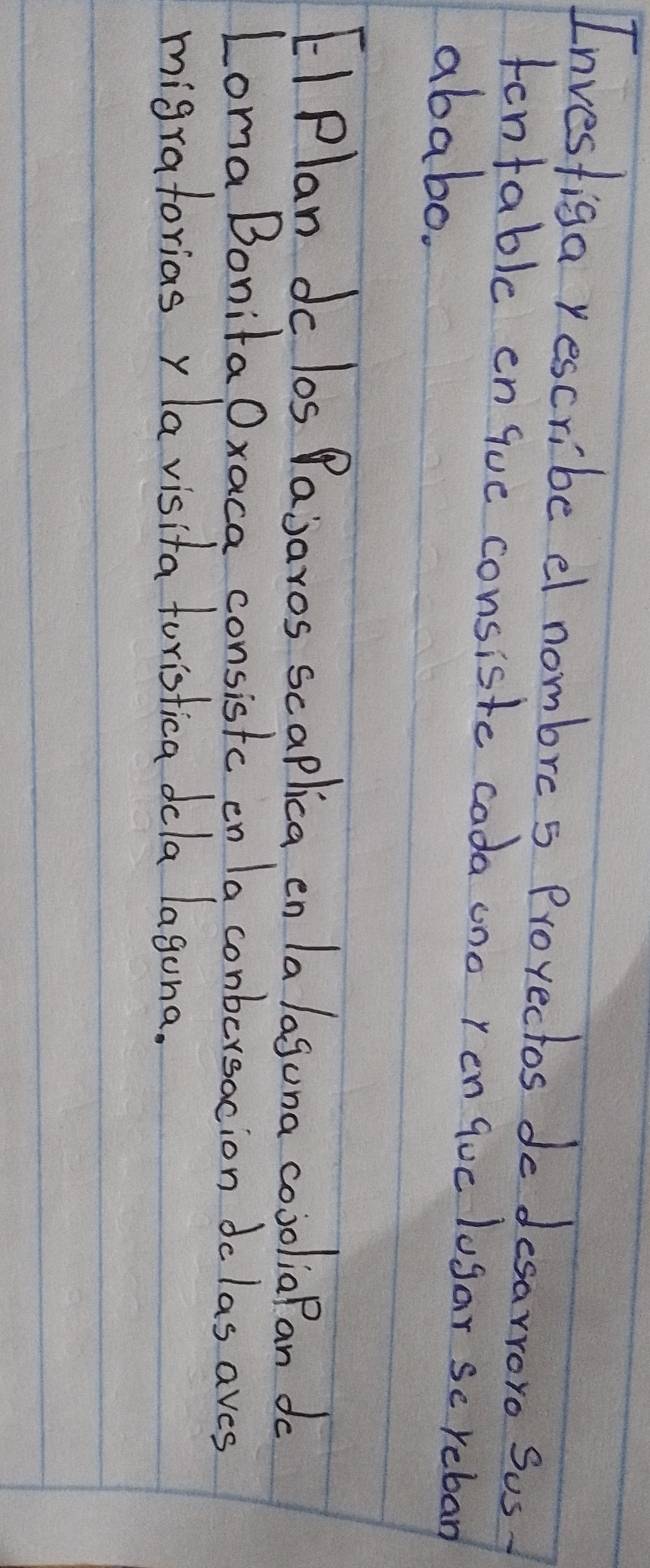 Investiga y escribe el nombre 5 Proyectos de desarroyo Sus-
tentable en que consiste cada uno y en que lugar se reban
ababo.
El Plan de los Pajaros se aplica en la laguna cojoliapan de
Loma Bonita Oxaca consiste en la conbersacion de las aves
migratorias y la visita turistica de la laguna.